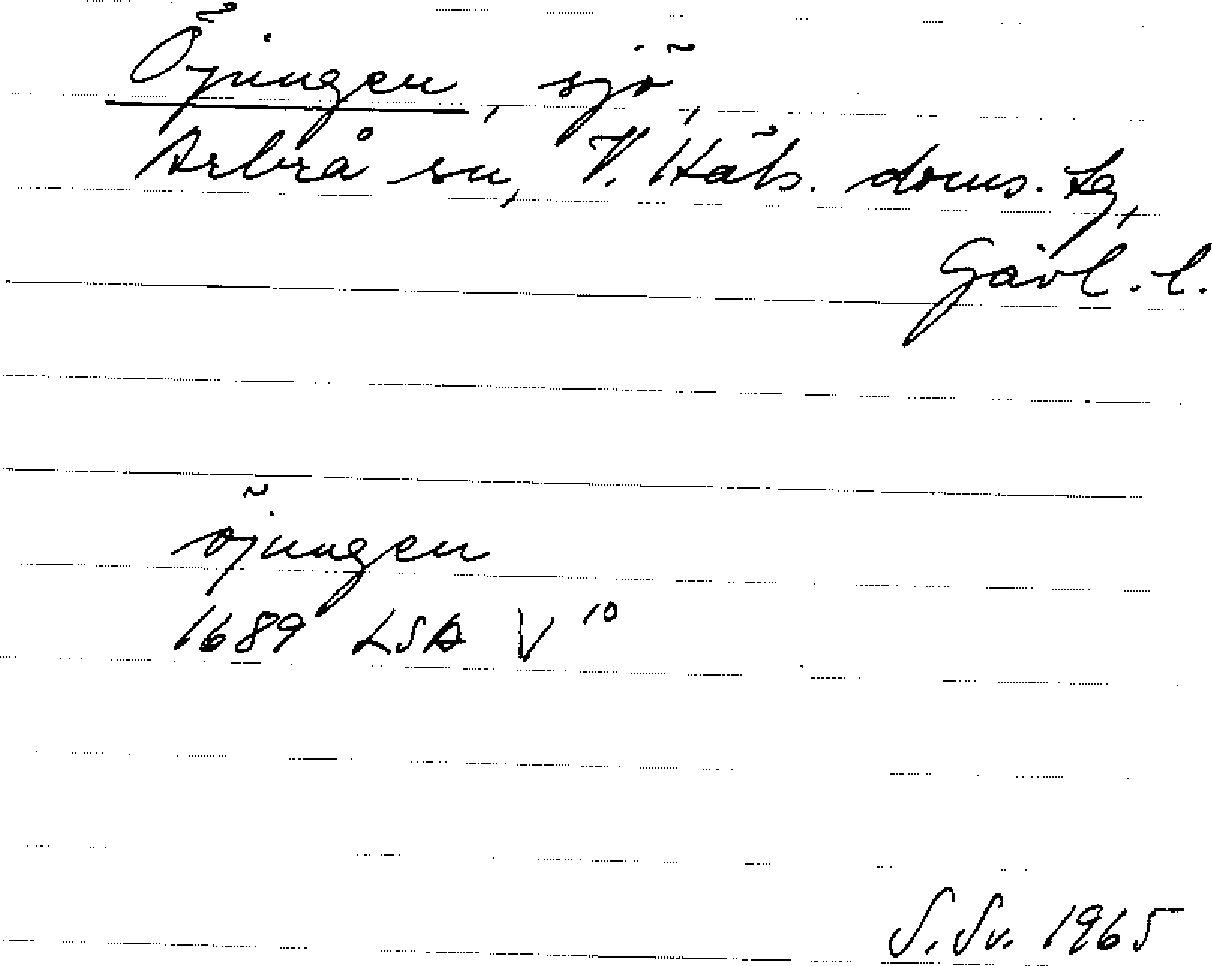 Öjungen, sjö,
Arbrå sn, V. Häls. doms. tg,
Gävl. l.
öjungen
1689 LSA V 10
S. Sv. 1965